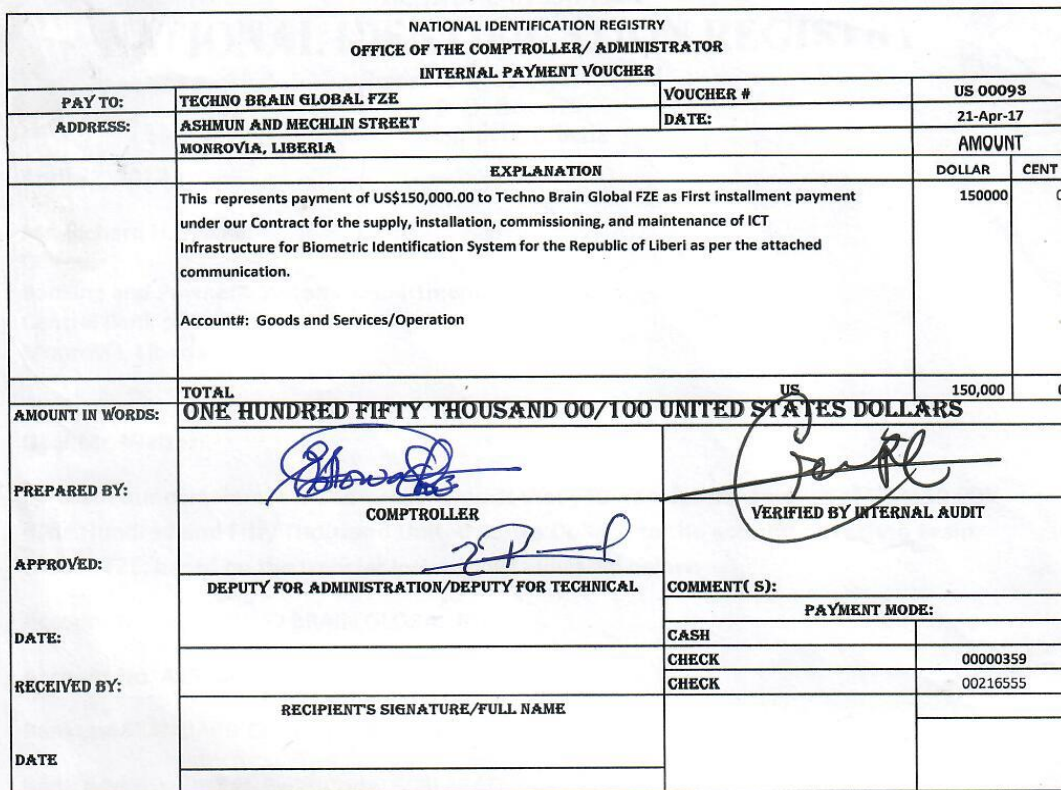 NATIONAL IDENTIFICATION REGISTRY
OFFICE OF THE COMPTROLLER/ ADMINISTRATOR
INTERNAL PAYMENT VOUCHER
PAY TO: TECHNO BRAIN GLOBAL FZE VOUCHER # US 00093
ADDRESS: ASHMUN AND MECHLIN STREET DATE: 21-Apr-17
MONROVIA, LIBERIA AMOUNT
EXPLANATION DOLLAR CENT
This represents payment of US$150,000.00 to Techno Brain Global FZE as First installment payment 150000 0
under our Contract for the supply, installation, commissioning, and maintenance of ICT
Infrastructure for Biometric Identification System for the Republic of Liberi as per the attached
communication.
Account#: Goods and Services/Operation
TOTAL US 150,000 0
AMOUNT IN WORDS: ONE HUNDRED FIFTY THOUSAND 00/100 UNITED STATES DOLLARS
PREPARED BY:
COMPTROLLER VERIFIED BY INTERNAL AUDIT
APPROVED:
DEPUTY FOR ADMINISTRATION/DEPUTY FOR TECHNICAL COMMENT( S):
PAYMENT MODE:
DATE: CASH
CHECK 00000359
RECEIVED BY: CHECK 00216555
RECIPIENT'S SIGNATURE/FULL NAME
DATE